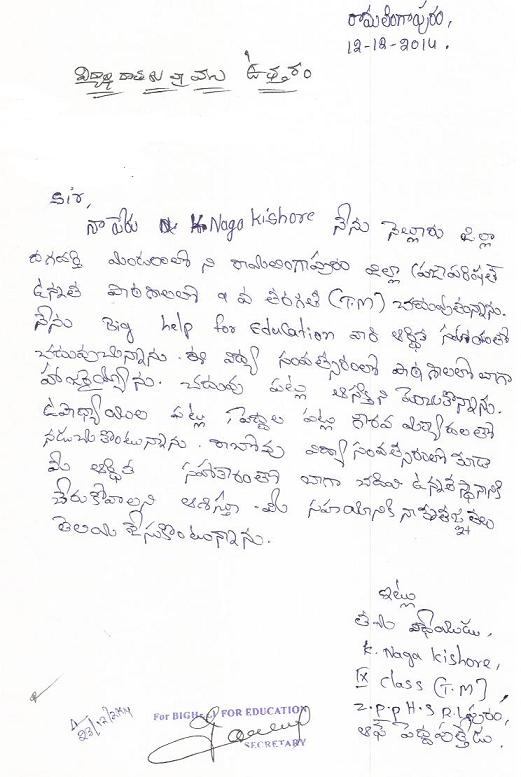 రామలింగాపురం,
12-12-2014.
ఉత్తరం
Sir,
నా పేరు K. Naga Kishore నేను నెల్లూరు జిల్లా
దగదర్తి మండలంలోని రామలింగాపురం జిల్లా పరిషత్
ఉన్నత పాఠశాలలో 9 వ తరగతి (T.M) చదువుతున్నాను.
నేను Big help for Education వారి ఆర్థిక సహాయంతో
చదువుచున్నాను. ఈ విద్యా సంవత్సరంలో పాఠశాలలో బాగా
హాజరైయ్యాను. చదువు పట్ల ఆసక్తిని
ఉపాధ్యాయుల పట్ల, పెద్దల పట్ల గౌరవ మర్యాదలతో
నడుచుకొంటున్నాను. రాబోవు విద్యా సంవత్సరంలో కూడా
మీ ఆర్థిక సహకారంతో బాగా చదివి ఉన్నత స్థానానికి
చేరుకోవాలని ఆశిస్తూ మీ సహాయానికి నా కృతజ్ఞతలు
తెలియజేసుకొంటున్నాను.
ఇట్లు
తమ విధేయుడు,
K. Naga Kishore,
IX class (T.M)
Z.p.p H.S R.L పురం,
23/12/2014
For BIGHelp FOR EDUCATION
SECRETARY